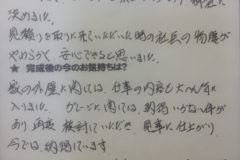 決めました。
見積りを取りに来ていただいた時の社長の物腰が
やわらかく、安心できると思いました。
★ 完成後の今のお気持ちは?
家の外壁に関しては、仕事の内容も大変気に
入りました。ガレージに関しては、納得いかない件が
あり再度検討していただき、見事に仕上がり、
今では納得しています